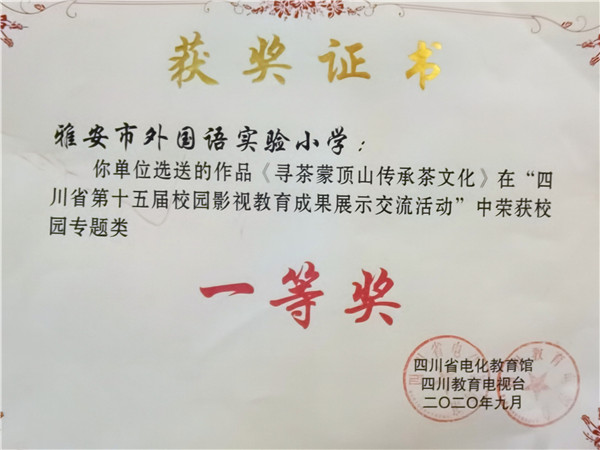 获奖证书
雅安市外国语实验小学：
你单位选送的作品《寻茶蒙顶山传承茶文化》在“四
川省第十五届校园影视教育成果展示交流活动”中荣获校
园专题类
一等奖
四川省电化教育馆
四川教育电视台
二〇二〇年九月